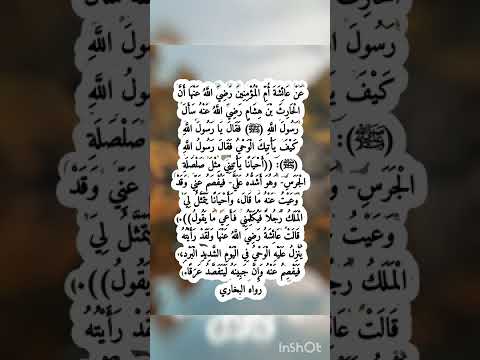 عَنْ عَائِشَةَ أُمِّ الْمُؤْمِنِينَ رَضِيَ اللَّهُ عَنْهَا أَنَّ
الْحَارِثَ بْنَ هِشَامٍ رَضِيَ اللَّهُ عَنْهُ سَأَلَ
رَسُولَ اللَّهِ (ﷺ) فَقَالَ يَا رَسُولَ اللَّهِ
كَيْفَ يَأْتِيكَ الْوَحْيُ فَقَالَ رَسُولُ اللَّهِ
(ﷺ): ((أَحْيَانًا يَأْتِينِي مِثْلَ صَلْصَلَةِ
الْجَرَسِ- وَهُوَ أَشَدُّهُ عَلَيَّ- فَيُفْصَمُ عَنِّي وَقَدْ
وَعَيْتُ عَنْهُ مَا قَالَ، وَأَحْيَانًا يَتَمَثَّلُ لِيَ
الْمَلَكُ رَجُلاً فَيُكَلِّمُنِي فَأَعِي مَا يَقُولُ)).
قَالَتْ عَائِشَةُ رَضِيَ اللَّهُ عَنْهَا وَلَقَدْ رَأَيْتُهُ
يَنْزِلُ عَلَيْهِ الْوَحْيُ فِي الْيَوْمِ الشَّدِيدِ الْبَرْدِ،
فَيَفْصِمُ عَنْهُ وَإِنَّ جَبِينَهُ لَيَتَفَصَّدُ عَرَقًا.
رواه البخاري
InShOt